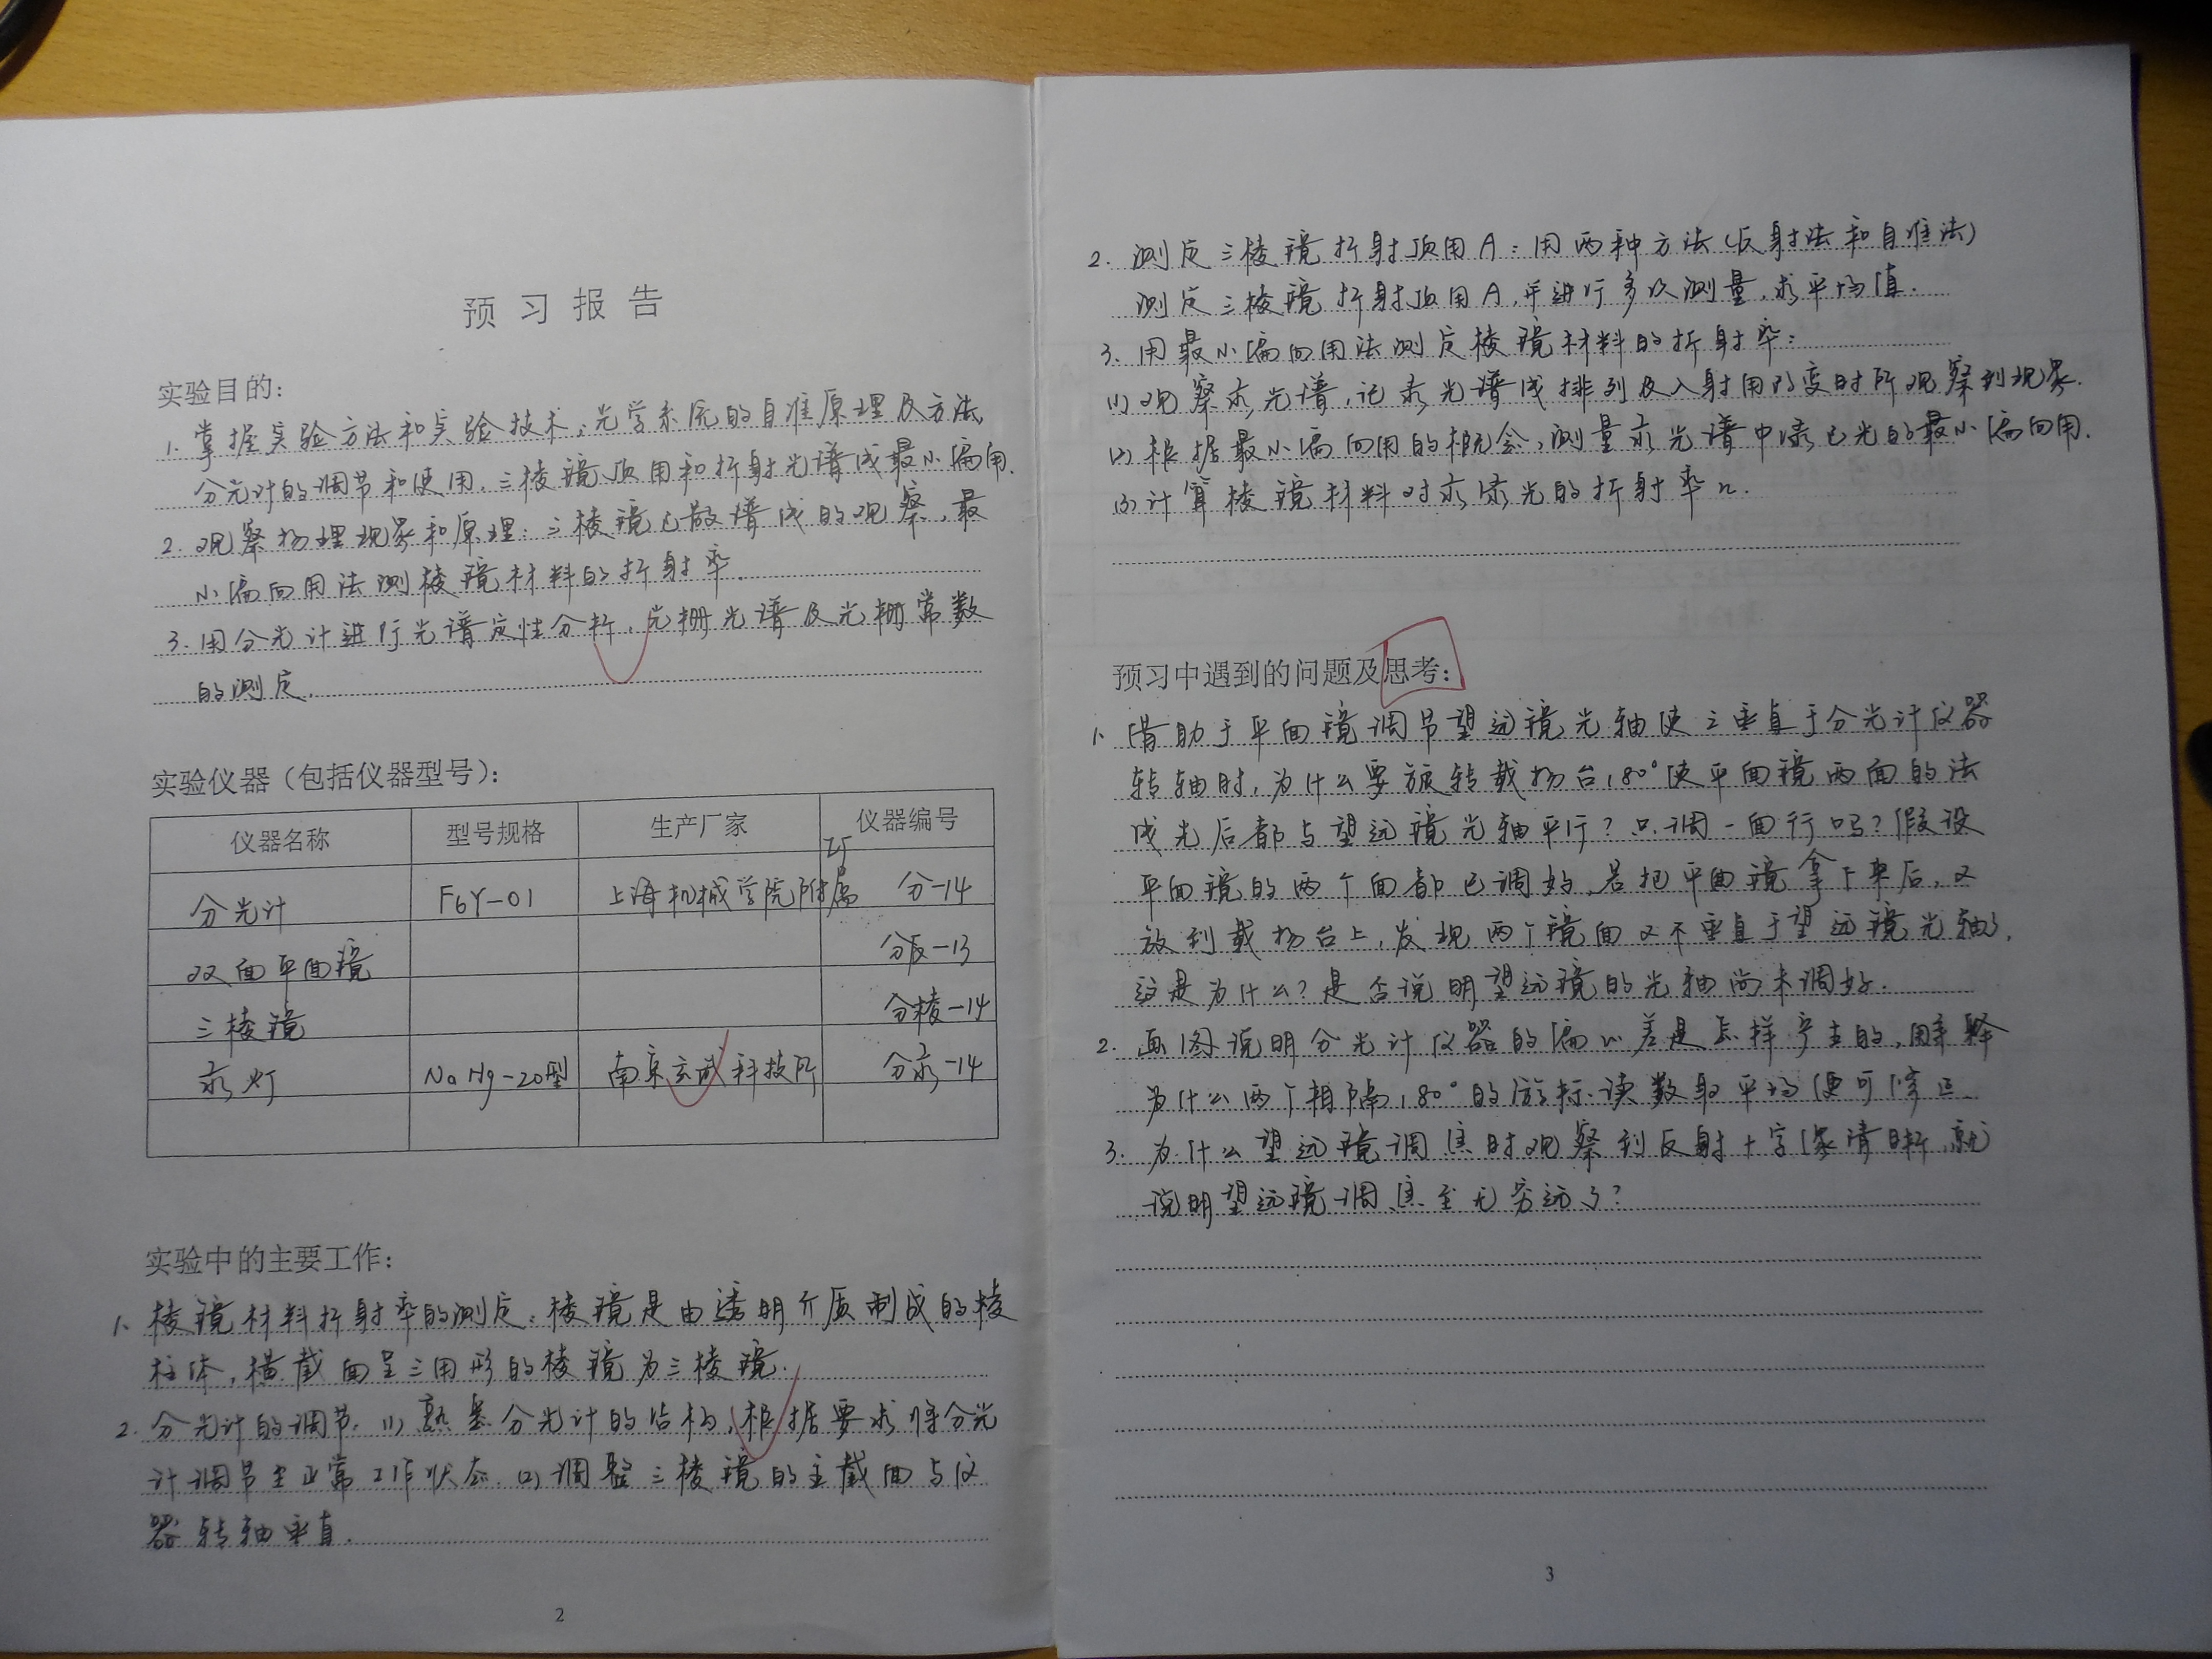 预习报告
实验目的：
1. 掌握实验方法和实验技术：光学系统的自准原理及方法，
分光计的调节和使用，三棱镜顶角和折射光谱线最小偏角．
2. 观察物理现象和原理：三棱镜色散谱线的观察，最
小偏向角法测棱镜材料的折射率．
3. 用分光计进行光谱定性分析，光栅光谱及光栅常数
的测定．
实验仪器（包括仪器型号）：
仪器名称 型号规格 生产厂家 仪器编号
分光计 FGY-01 上海机械学院附属 分-14
双面平面镜 分反-13
三棱镜 分棱-14
汞灯 NaHg-20型 南京 科技所 分汞-14
实验中的主要工作：
1、棱镜材料折射率的测定：棱镜是由透明介质制成的棱
柱体，横截面呈三角形的棱镜为三棱镜．
2. 分光计的调节．(1) 熟悉分光计的结构，根据要求将分光
计调节至正常工作状态．(2) 调整三棱镜的主截面与仪
器转轴垂直．
2
2. 测定三棱镜折射顶角A：用两种方法（反射法和自准法）
测定三棱镜折射顶角A，并进行多次测量，求平均值．
3. 用最小偏向角法测定棱镜材料的折射率：
(1) 观察汞光谱，记录光谱线排列及入射角改变时所观察到现象．
(2) 根据最小偏向角的概念，测量汞光谱中绿色光的最小偏向角．
(3) 计算棱镜材料对汞绿光的折射率n．
预习中遇到的问题及思考：
1、借助于平面镜调节望远镜光轴使之垂直于分光计仪器
转轴时，为什么要旋转载物台180°使平面镜两面的法
线先后都与望远镜光轴平行？只调一面行吗？假设
平面镜的两个面都已调好，若把平面镜拿下来后，又
放到载物台上，发现两个镜面又不垂直于望远镜光轴了，
这是为什么？是否说明望远镜的光轴尚未调好．
2. 画图说明分光计仪器的偏心差是怎样产生的，用来释
为什么两个相隔180°的游标读数取平均便可修正．
3. 为什么望远镜调焦时观察到反射十字像清晰，就
说明望远镜调焦至无穷远了？
3